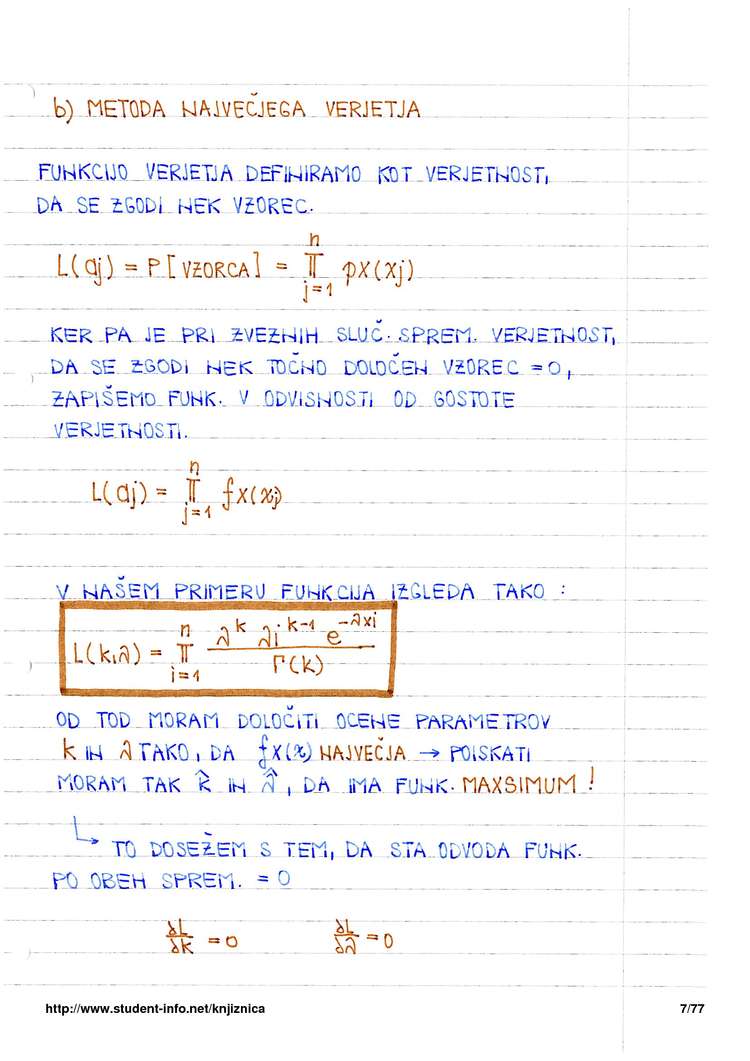 b) METODA NAJVEČJEGA VERJETJA
FUNKCIJO VERJETJA DEFINIRAMO KOT VERJETNOST,
DA SE ZGODI NEK VZOREC.
L(aj) = P[VZORCA] = n∏j=1 pX(xj)
KER PA JE PRI ZVEZNIH SLUČ. SPREM. VERJETNOST,
DA SE ZGODI NEK TOČNO DOLOČEN VZOREC = 0,
ZAPIŠEMO FUNK. V ODVISNOSTI OD GOSTOTE
VERJETNOSTI.
L(aj) = n∏j=1 fX(xj)
V NAŠEM PRIMERU FUNKCIJA IZGLEDA TAKO :
L(k,λ) = n∏i=1 λ^k λi^k-1 e^-λxi / Γ(k)
OD TOD MORAM DOLOČITI OCENE PARAMETROV
k IN λ TAKO, DA fX(x) NAJVEČJA → POISKATI
MORAM TAK k̂ IN λ̂, DA IMA FUNK. MAXSIMUM !
↳ TO DOSEŽEM S TEM, DA STA ODVODA FUNK.
PO OBEH SPREM. = 0
∂L/∂k = 0 ∂L/∂λ = 0
http://www.student-info.net/knjiznica 7/77